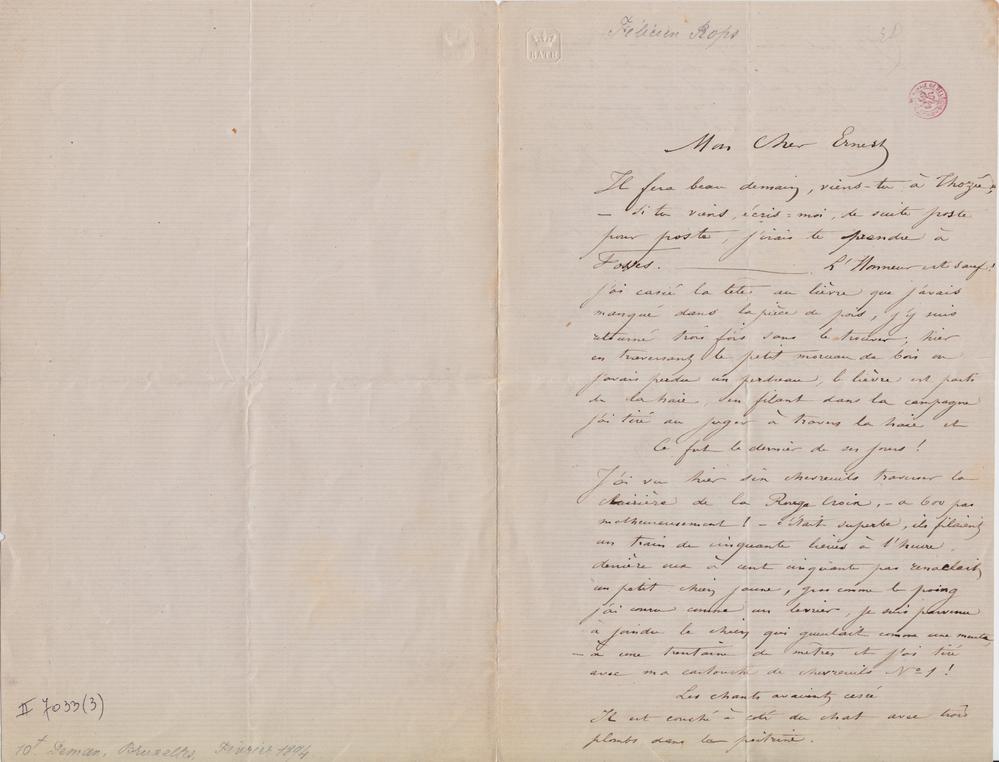 Félicien Rops
38
BATH
Mon cher Ernest
Il fera beau demain, viens-tu à Thozée,
– si tu viens, écris-moi, de suite poste
pour poste, j'irais te prendre à
Fosses. ——— L'Honneur est sauf!
j'ai cassé la tête au lièvre que j'avais
manqué dans la pièce de pois, j'y suis
retourné trois fois sans le trouver, hier
en traversant le petit morceau de bois ou
j'avais perdu un perdreau, le lièvre est parti
de la haie, en filant dans la campagne
j'ai tiré au juger à travers la haie et
Ce fut le dernier de ses jours!
J'ai vu hier six chevreuils traverser la
clairière de la Rouge Croix, – a 600 pas
malheureusement! – c'était superbe, ils filaient
un train de cinquante lieues à l'heure.
derrière eux à cent cinquante pas renaclait
un petit chien jaune, gros comme le poing
j'ai couru comme un levrier, je suis parvenu
à joindre le chien qui gueulait comme une meute,
– à une trentaine de mètres et j'ai tiré
avec ma cartouche de chevreuils N° 1!
Les chants avaient cessé
Il est couché à côté du chat avec trois
plombs dans la poitrine.
II 7033(3)
10f Deman, Bruxelles, Février 1894